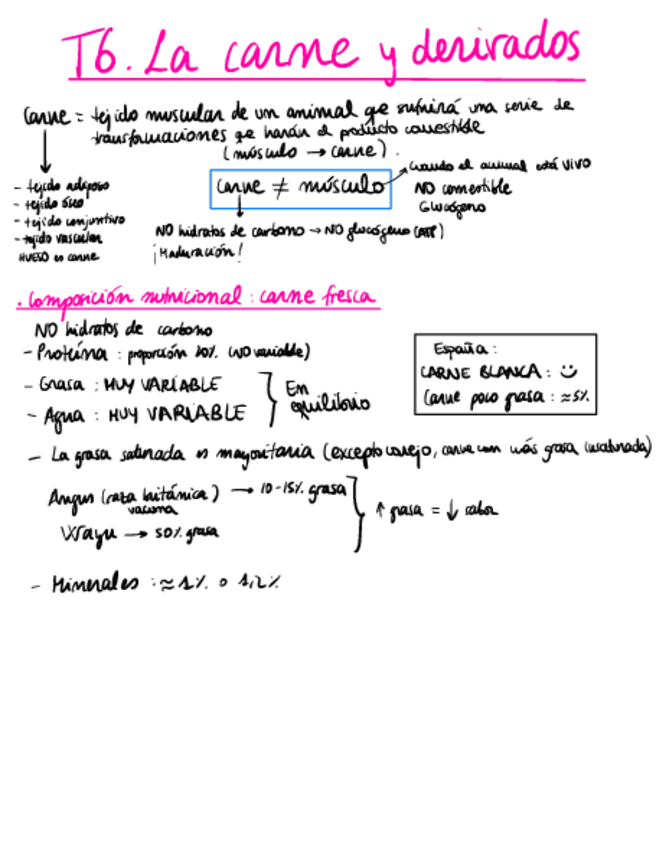 T6. La carne y derivados
Carne = tejido muscular de un animal qe sufrirá una serie de
transformaciones qe harán el producto comestible
(músculo → carne).
- tejido adiposo
- tejido óseo
- tejido conjuntivo
- tejido vascular
HUESO es carne
carne ≠ músculo
cuando el animal está vivo
NO comestible
Glucógeno
NO hidratos de carbono → NO glucógeno (ATP)
¡Maduración!
. Composición nutricional : carne fresca
NO hidratos de carbono
- Proteína : proporción 20%. (NO variable)
- Grasa : MUY VARIABLE
- Agua : MUY VARIABLE
En
equilibrio
España :
CARNE BLANCA : ☺
Carne poco grasa : ≈5%
- La grasa saturada es mayoritaria (excepto conejo, carne con más grasa insaturada)
Angus (raza británica) → 10-15% grasa
vacuna
Wayu → 50% grasa
↑ grasa = ↓ sabor
- Minerales : ≈ 1% o 1,2%